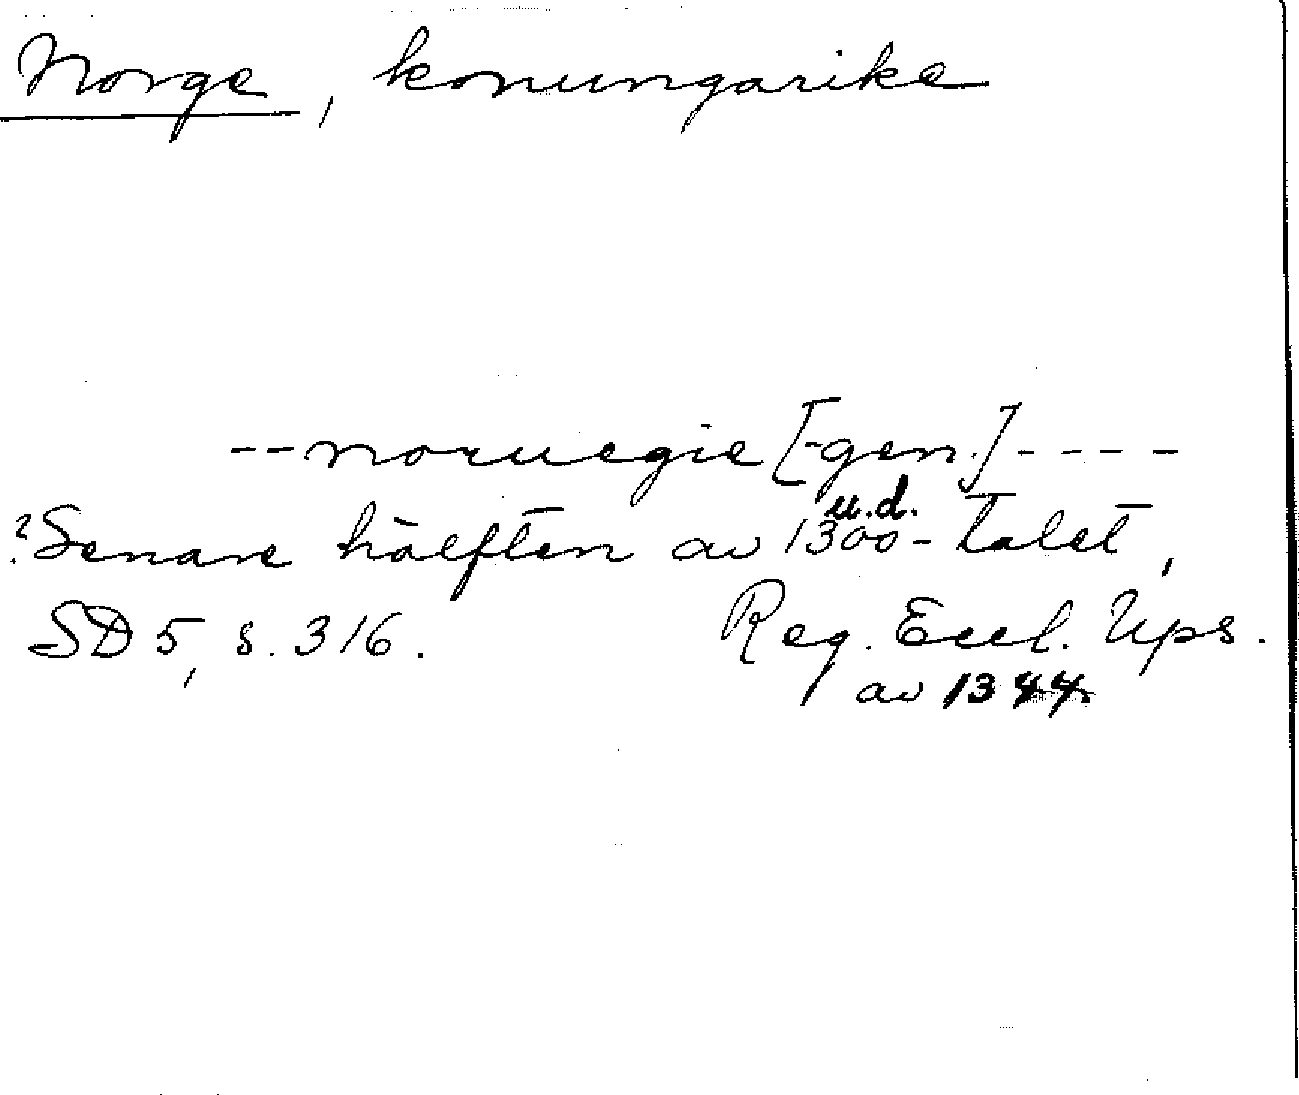 Norge, konungarike
--noruegie [-gen.]----
u.d.
?Senare hälften av 1300-talet,
SD 5, s. 316. Reg. Eccl. Ups.
av 1344.